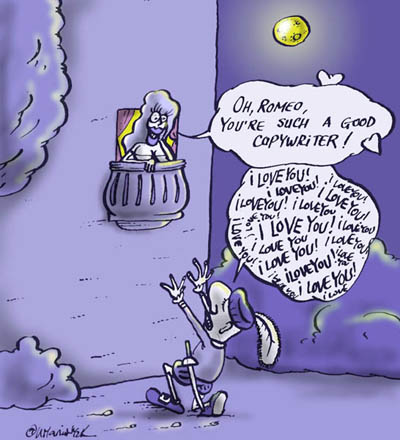 OH, ROMEO,
YOU'RE SUCH A GOOD
COPYWRITER!
I LOVE YOU!
I LOVE YOU! I LOVE YOU!
I LOVE YOU! I LOVE YOU!
I LOVE YOU! I LOVE YOU!
I LOVE YOU! I LOVE YOU!
I LOVE YOU I LOVE YOU!
I LOVE YOU! I LOVE YOU!
I LOVE YOU!
I LOVE YOU!
I LOVE